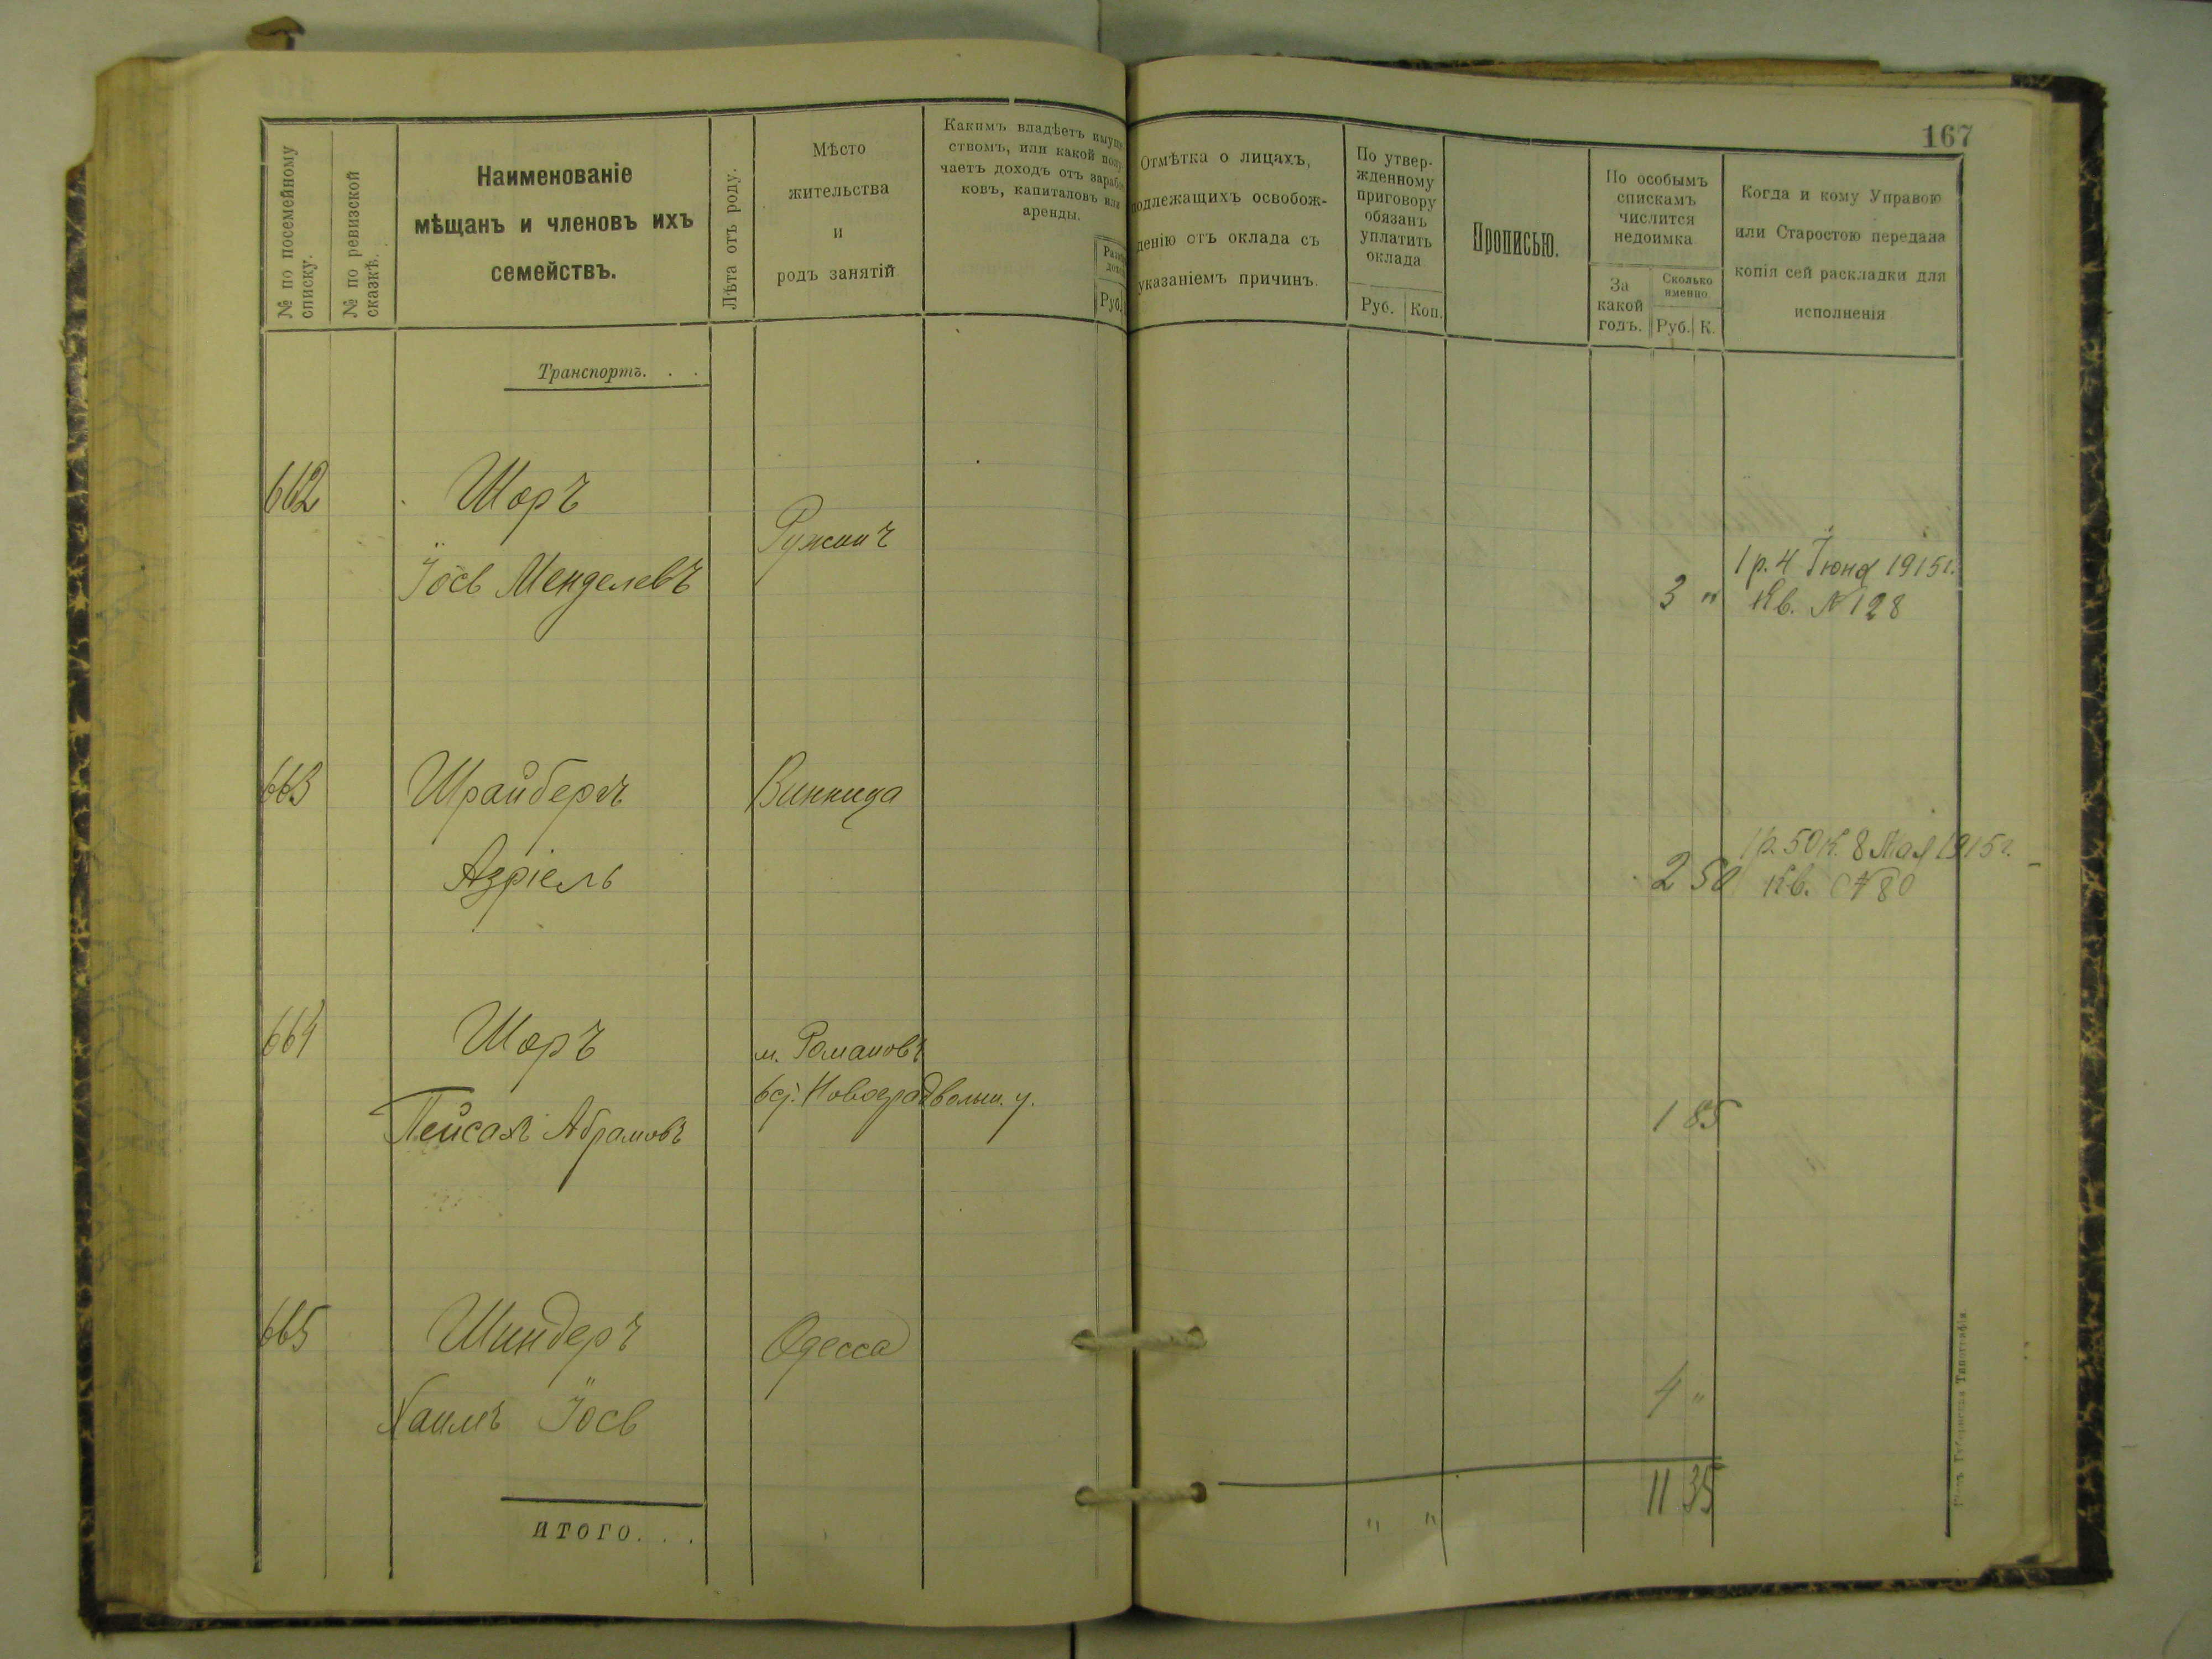 167
№ по посемейному
списку.
№ по ревизской
сказкѣ.
Наименованіе
мѣщанъ и членовъ ихъ
семействъ.
Лѣта отъ роду.
Мѣсто
жительства
и
родъ занятій
Какимъ владѣетъ имуще
ствомъ, или какой полу
чаетъ доходъ отъ зарабо
ковъ, капиталовъ или
аренды.
Руб.
Отмѣтка о лицахъ,
подлежащихъ освобож-
денію отъ оклада съ
указаніемъ причинъ.
По утвер-
жденному
приговору
обязанъ
уплатить
оклада
Руб. Коп.
Прописью.
По особымъ
спискамъ
числится
недоимка
За
какой
годъ.
Сколько
именно
Руб. К.
Когда и кому Управою
или Старостою передана
копія сей раскладки для
исполненія
Транспортъ. . .
662
Шоръ
Іось Менделевъ
Ружинъ
3 "
1 р. 4 Іюня 1915 г.
Кв. № 128
663
Шрайберъ
Азріель
Винница
2 50
1 р. 50 к. 8 Мая 1915 г.
Кв. № 80
664
Шоръ
Пейсахъ Абрамовъ
м. Романовъ
Новоградволын. у.
1 85
665
Шиндеръ
Хаимъ Іось
Одесса
4 "
итого. . .
" "
11 35